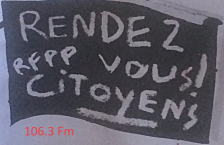 RENDEZ
RFPP VOUS!
CiTOYENS
106.3 Fm